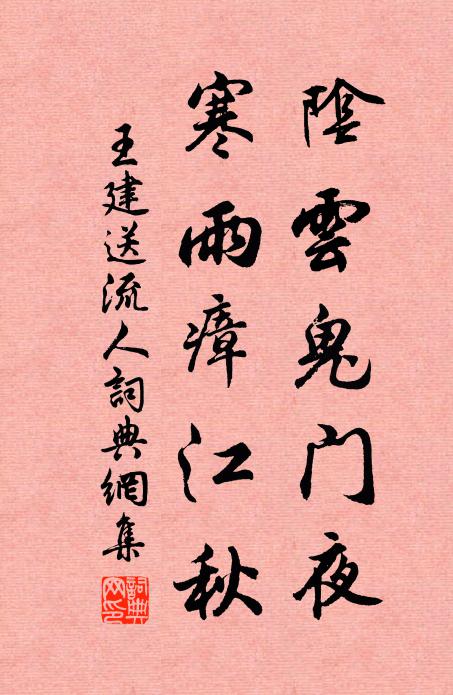 陰雲鬼门夜
寒雨瘴江秋
王建送流人詞典網集
詞典网印